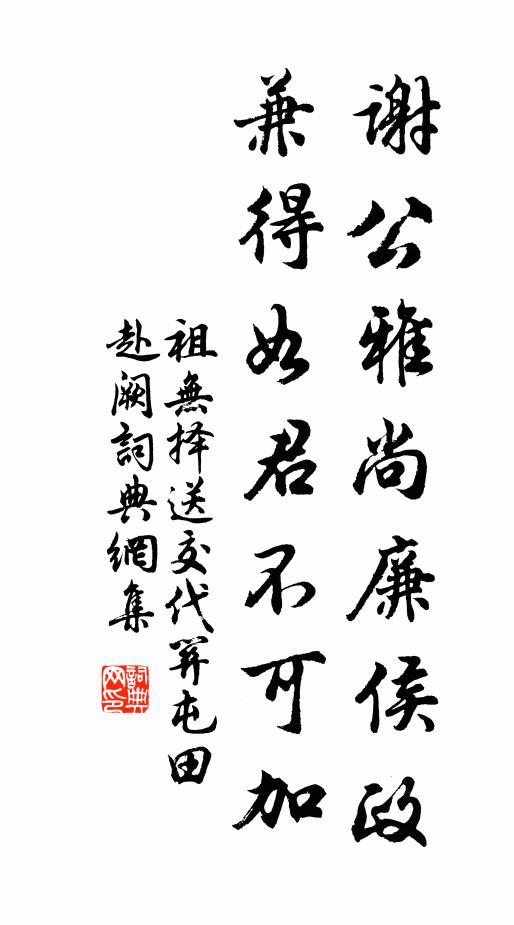 謝公雅尚廉侯政
兼得如君不可加
祖無择送交代羿屯田
赴阙詞典網集
詞典网印